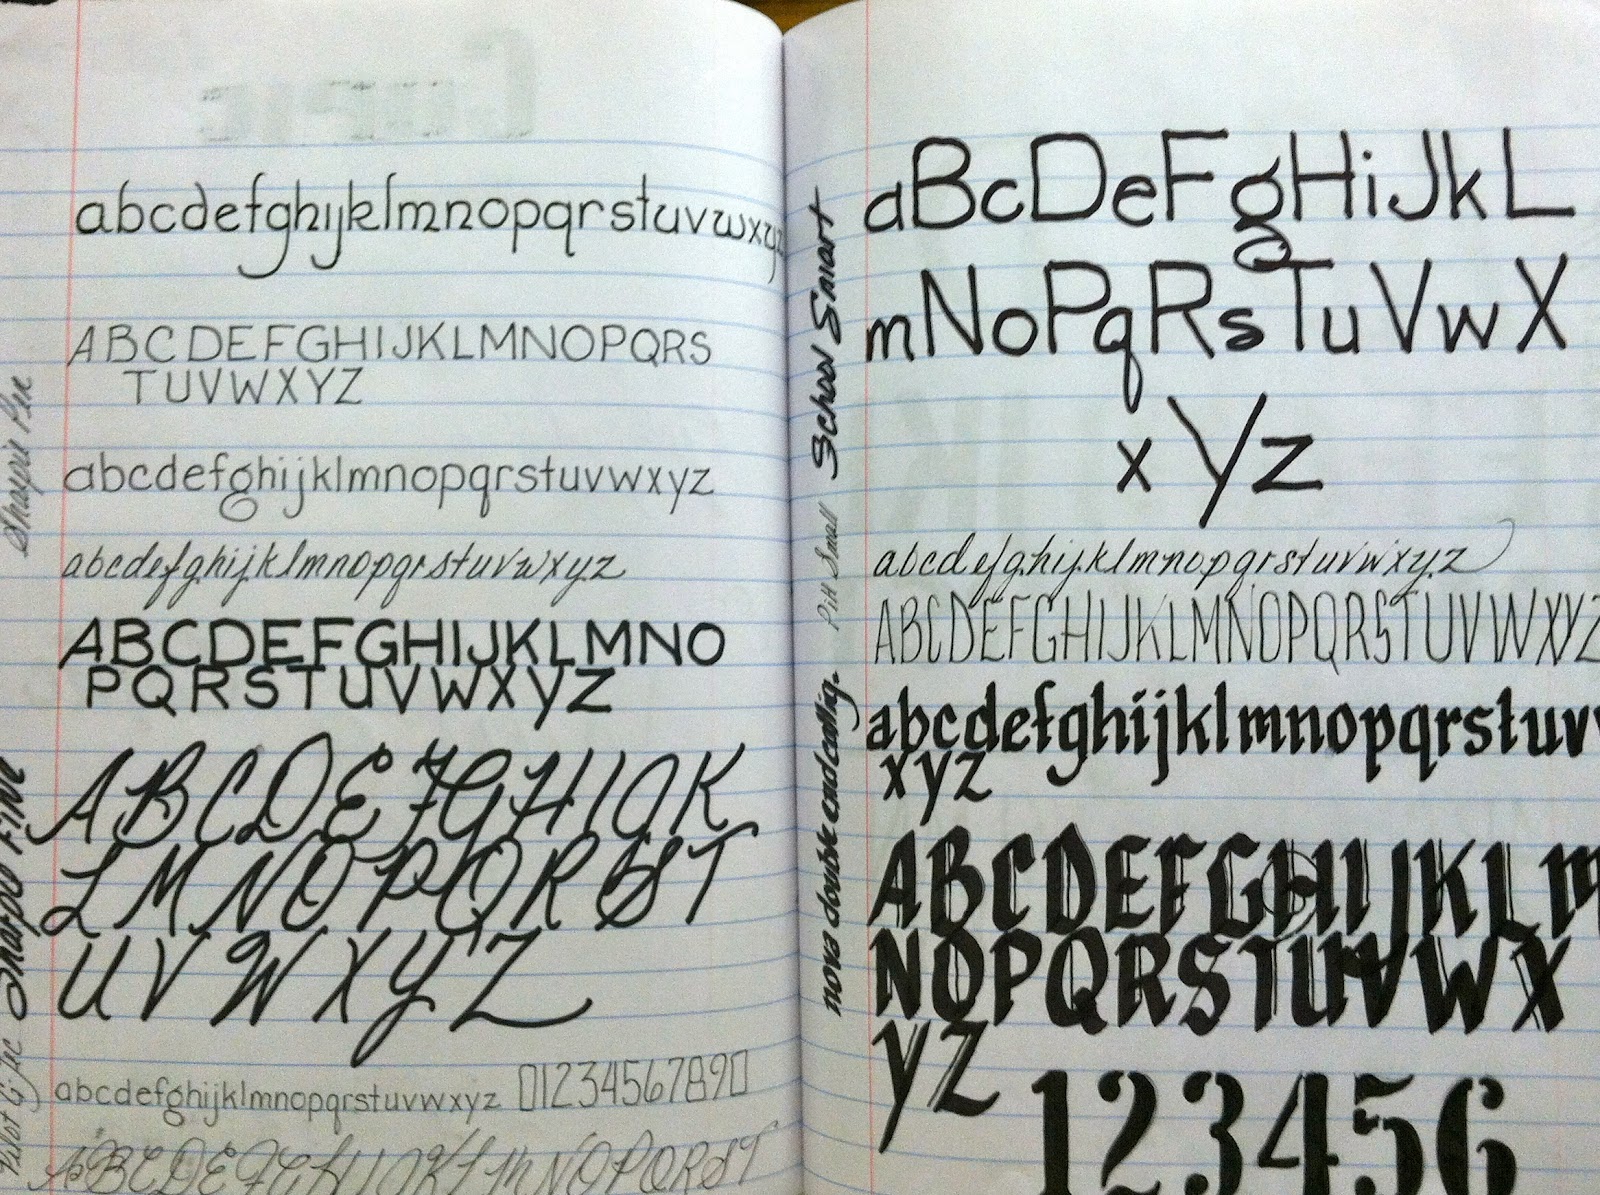 Sharpie Pen
abcdefghijklmnopqrstuvwxyz
ABCDEFGHIJKLMNOPQRS
TUVWXYZ
abcdefghijklmnopqrstuvwxyz
abcdefghijklmnopqrstuvwxyz
ABCDEFGHIJKLMNO
PQRSTUVWXYZ
Fine
ABCDEFGHIJK
LMNOPQRST
UVWXYZ
Pilot G-Tec
abcdefghijklmnopqrstuvwxyz 01234567890
ABCDEFGHIJKLMNOPQRST
School Smart
aBcDeFgHiJkL
mNoPqRsTuVwX
xYz
Pitt Small
abcdefghijklmnopqrstuvwxyz
ABCDEFGHIJKLMNOPQRSTUVWXYZ
nova double ended callig.
abcdefghijklmnopqrstuv
xyz
ABCDEFGHIJKLm
NOPQRSTUVWX
YZ
123456